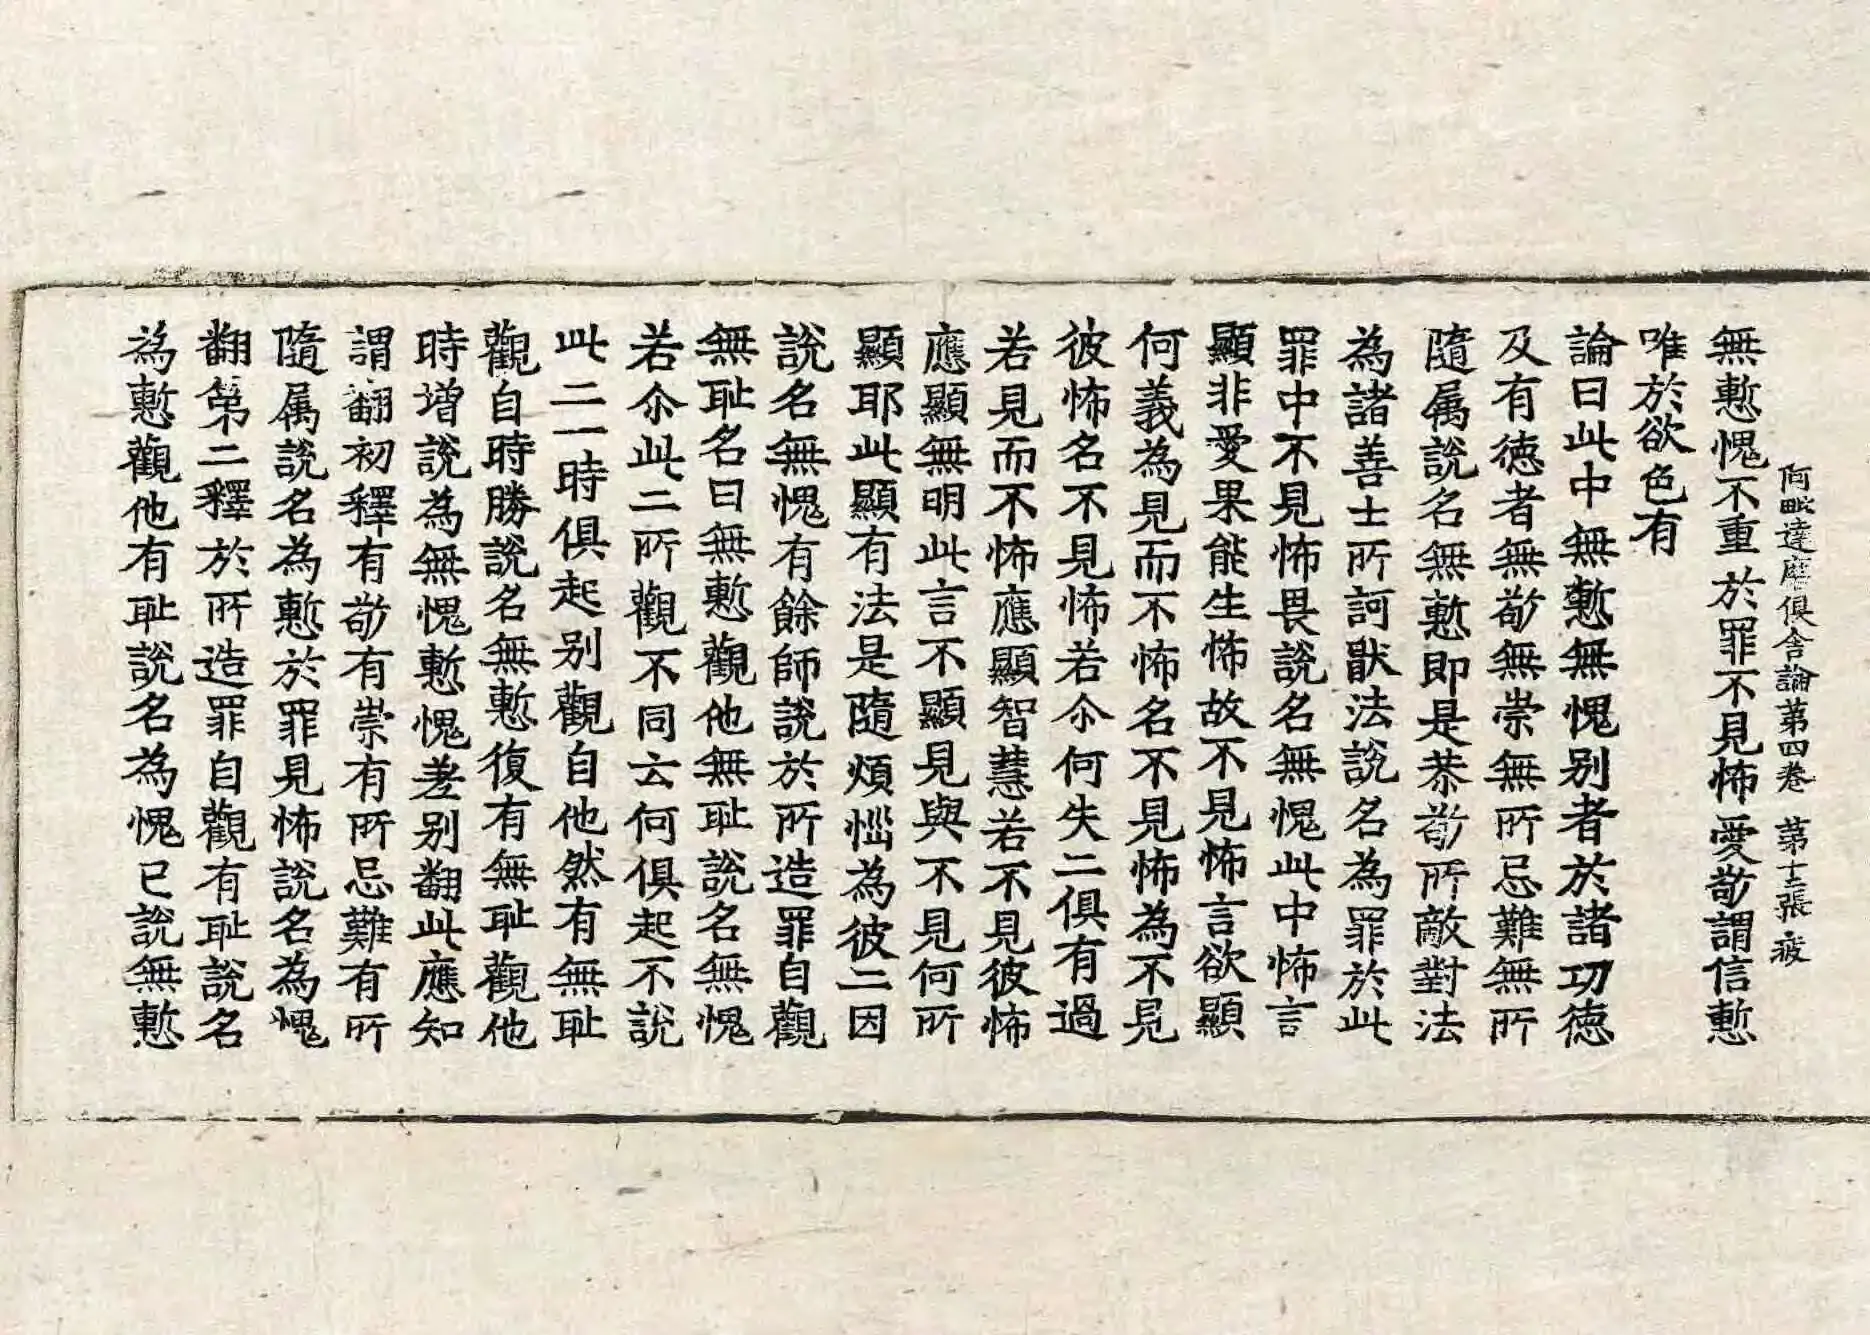 阿毗達磨俱舍論第四卷 第十三張 疲
無慙愧不重於罪不見怖愛敬謂信慙
唯於欲色有
論曰此中無慙無愧別者於諸功德
及有德者無敬無崇無所忌難無所
隨属說名無慙即是恭敬所敵對法
為諸善士所訶猒法說名為罪於此
罪中不見怖畏說名無愧此中怖言
顯非愛果能生怖故不見怖言欲顯
何義為見而不怖名不見怖為不見
彼怖名不見怖若尒何失二俱有過
若見而不怖應顯智慧若不見彼怖
應顯無明此言不顯見與不見何所
顯耶此顯有法是隨煩惱為彼二因
說名無愧有餘師說於所造罪自觀
無耻名曰無慙觀他無耻說名無愧
若尒此二所觀不同云何俱起不說
此二一時俱起別觀自他然有無耻
觀自時勝說名無慙復有無耻觀他
時增說為無愧慙愧差別翻此應知
謂翻初釋有敬有崇有所忌難有所
隨属說名為慙於罪見怖說名為愧
翻第二釋於所造罪自觀有耻說名
為慙觀他有耻說名為愧已說無慙